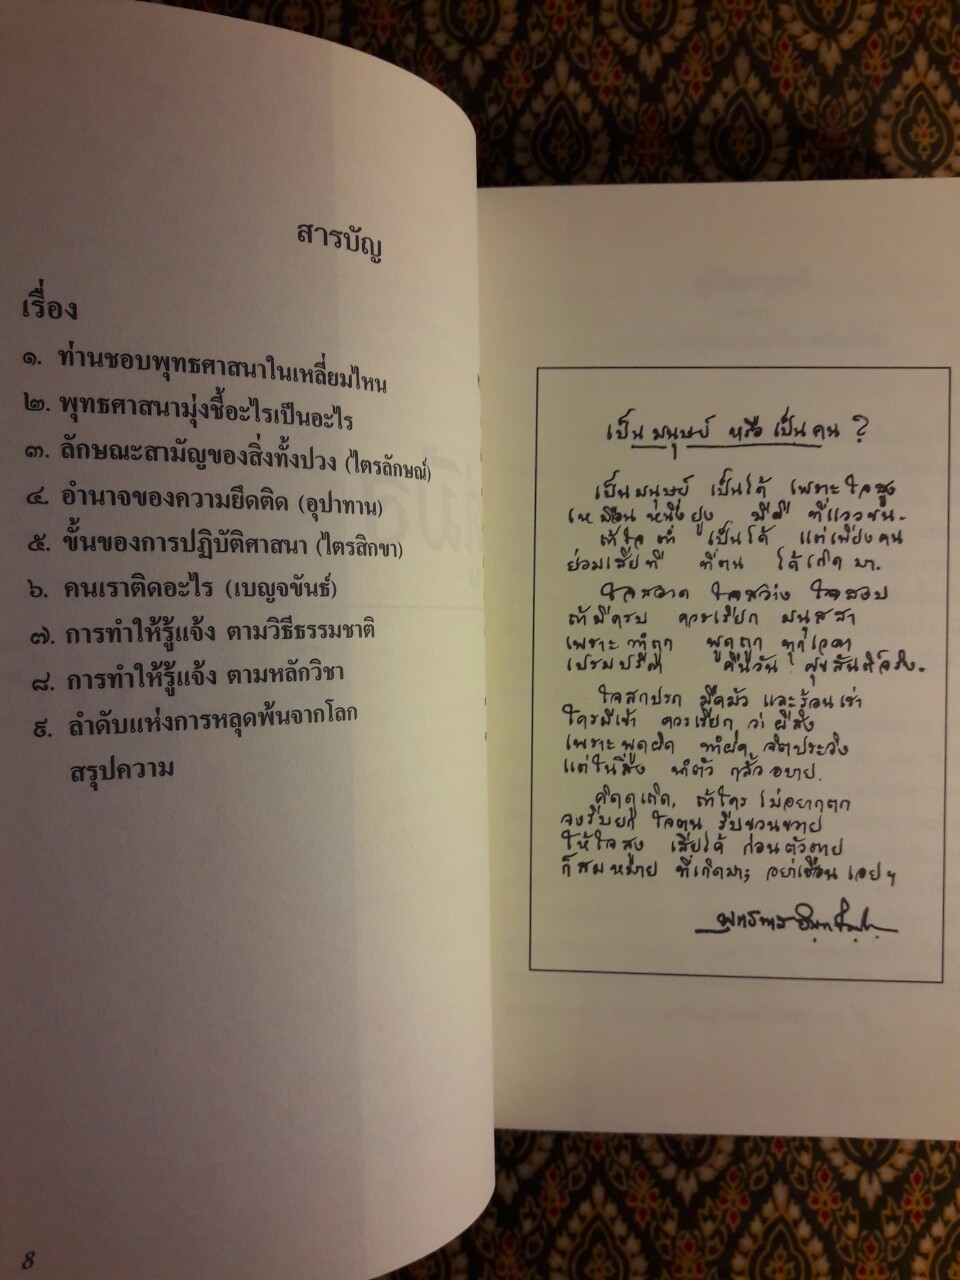 สารบัญ
เรื่อง
๑. ท่านชอบพุทธศาสนาในเหลี่ยมไหน
๒. พุทธศาสนามุ่งชี้อะไรเป็นอะไร
๓. ลักษณะสามัญของสิ่งทั้งปวง (ไตรลักษณ์)
๔. อำนาจของความยึดติด (อุปาทาน)
๕. ขั้นของการปฏิบัติศาสนา (ไตรสิกขา)
๖. คนเราติดอะไร (เบญจขันธ์)
๗. การทำให้รู้แจ้ง ตามวิธีธรรมชาติ
๘. การทำให้รู้แจ้ง ตามหลักวิชา
๙. ลำดับแห่งการหลุดพ้นจากโลก
สรุปความ
8
เป็นมนุษย์ หรือเป็นคน ?
เป็นมนุษย์ เป็นได้ เพราะใจสูง
เหมือนหนึ่งยูง มีดี ที่แววขน.
ถ้าใจต่ำ เป็นได้ แต่เพียงคน
ย่อมเสียที ที่ตน ได้เกิดมา.
ใจสอาด ใจสว่าง ใจสงบ
ถ้ามีครบ ควรเรียก มนุสสา
เพราะทำถูก พูดถูก ทุกเวลา
เปรมปรีดา คืนวัน ศุขสันติ์จริง.
ใจสกปรก มืดมัว และร้อนเร่า
ใครมีเข้า ควรเรียก ว่าผีสิง
เพราะพูดผิด ทำผิด จิตประวิง
แต่ในสิ่ง ทำตัว กลั้วอบาย.
คิดดูเถิด, ถ้าใคร ไม่อยากตก
จงรีบยก ใจตน รีบขวนขวาย
ให้ใจสูง เสียได้ ก่อนตัวตาย
ก็สมหมาย ที่เกิดมา; อย่าเชือนเอย ฯ
พุทธทาส อินฺทปญฺโญ